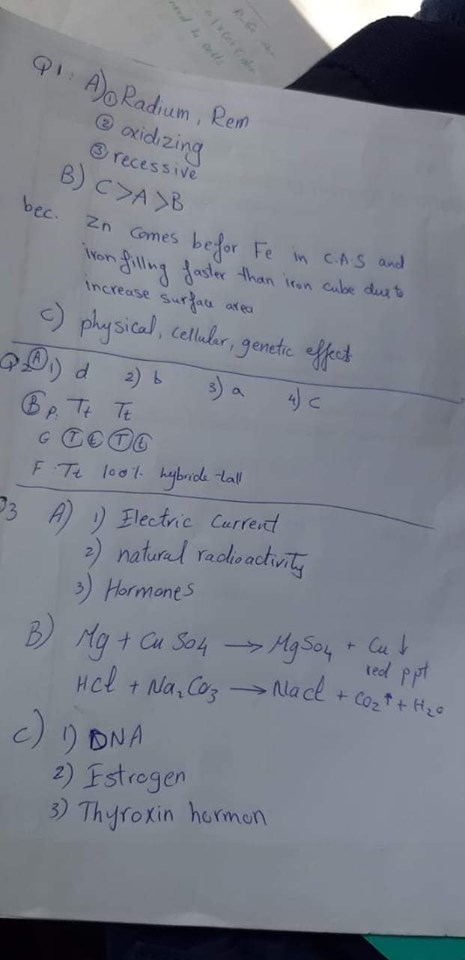 Q1: A) ① Radium, Rem
② oxidizing
③ recessive
B) C>A>B
bec. Zn comes befor Fe in C.A.S and
iron filling faster than iron cube due to
increase surface area
C) physical, cellular, genetic effect
Q2 Ⓐ 1) d 2) b 3) a 4) C
Ⓑ P. Tt Tt
G Ⓣ ⓣ Ⓣ ⓣ
F. Tt 100% hybride tall
Q3 A) 1) Electric Current
2) natural radioactivity
3) Hormones
B) Mg + CuSO4 → MgSO4 + Cu ↓
red ppt
HCl + Na2CO3 → NaCl + CO2↑ + H2O
C) 1) DNA
2) Estrogen
3) Thyroxin hormon